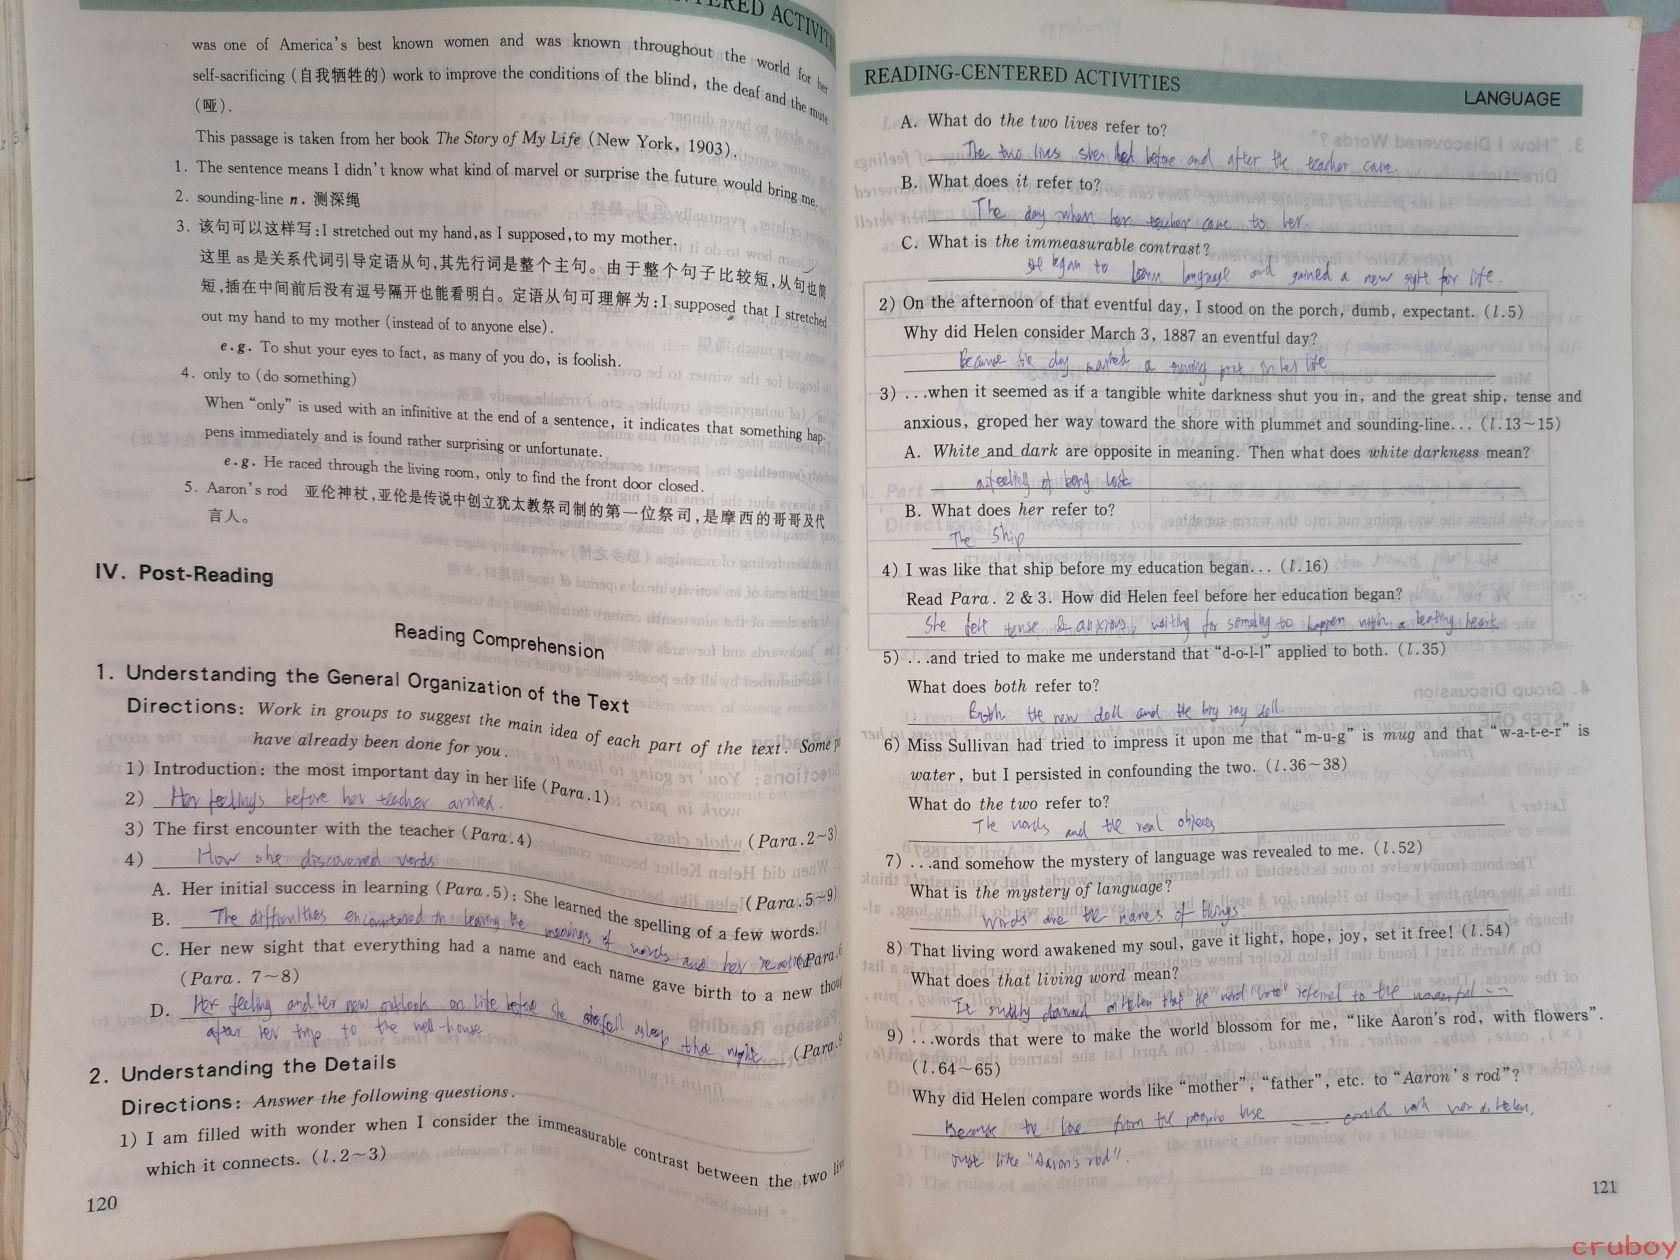 CENTERED ACTIVITIES
was one of America's best known women and was known throughout the world for her
self-sacrificing (自我牺牲的) work to improve the conditions of the blind, the deaf and the mute
(哑).
This passage is taken from her book The Story of My Life (New York, 1903).
1. The sentence means I didn't know what kind of marvel or surprise the future would bring me.
2. sounding-line n. 测深绳
3. 该句可以这样写:I stretched out my hand,as I supposed,to my mother.
这里 as 是关系代词引导定语从句,其先行词是整个主句。由于整个句子比较短,从句也简
短,插在中间前后没有逗号隔开也能看明白。定语从句可理解为:I supposed that I stretched
out my hand to my mother (instead of to anyone else).
e.g. To shut your eyes to fact, as many of you do, is foolish.
4. only to (do something)
When "only" is used with an infinitive at the end of a sentence, it indicates that something hap-
pens immediately and is found rather surprising or unfortunate.
e.g. He raced through the living room, only to find the front door closed.
5. Aaron's rod 亚伦神杖,亚伦是传说中创立犹太教祭司制的第一位祭司,是摩西的哥哥及代
言人。
IV. Post-Reading
Reading Comprehension
1. Understanding the General Organization of the Text
Directions: Work in groups to suggest the main idea of each part of the text. Some
have already been done for you.
1) Introduction: the most important day in her life (Para.1)
2) Her feelings before her teacher arrived. (Para.2~3)
3) The first encounter with the teacher (Para.4)
4) How she discovered words (Para.5~9)
A. Her initial success in learning (Para.5): She learned the spelling of a few words.
B. The difficulties encountered in learning the meanings of words and her (Para.
C. Her new sight that everything had a name and each name gave birth to a new
(Para. 7~8)
D. Her feeling and her new outlook on life before she fell asleep that night (Para.
after her trip to the well-house
2. Understanding the Details
Directions: Answer the following questions.
1) I am filled with wonder when I consider the immeasurable contrast between the two
which it connects. (l.2~3)
120
READING-CENTERED ACTIVITIES
LANGUAGE
A. What do the two lives refer to?
The two lives she had before and after the teacher came.
B. What does it refer to?
The day when her teacher came to her.
C. What is the immeasurable contrast?
She began to learn language and gained a new sight for life.
2) On the afternoon of that eventful day, I stood on the porch, dumb, expectant. (l.5)
Why did Helen consider March 3, 1887 an eventful day?
Because the day marked a turning point in her life
3) ...when it seemed as if a tangible white darkness shut you in, and the great ship, tense and
anxious, groped her way toward the shore with plummet and sounding-line... (l.13~15)
A. White and dark are opposite in meaning. Then what does white darkness mean?
a feeling of being lost
B. What does her refer to?
The ship
4) I was like that ship before my education began... (l.16)
Read Para. 2 & 3. How did Helen feel before her education began?
She felt tense & anxious, waiting for something to happen with a beating heart.
5) ...and tried to make me understand that "d-o-l-l" applied to both. (l.35)
What does both refer to?
Both the new doll and the big rag doll.
6) Miss Sullivan had tried to impress it upon me that "m-u-g" is mug and that "w-a-t-e-r" is
water, but I persisted in confounding the two. (l.36~38)
What do the two refer to?
The words and the real objects
7) ...and somehow the mystery of language was revealed to me. (l.52)
What is the mystery of language?
Words are the names of things.
8) That living word awakened my soul, gave it light, hope, joy, set it free! (l.54)
What does that living word mean?
It suddenly dawned on Helen that the word "water" referred to the wonderful ...
9) ...words that were to make the world blossom for me, "like Aaron's rod, with flowers".
(l.64~65)
Why did Helen compare words like "mother", "father", etc. to "Aaron's rod"?
Because the love from the people could work
just like "Aaron's rod".
121
cruboy